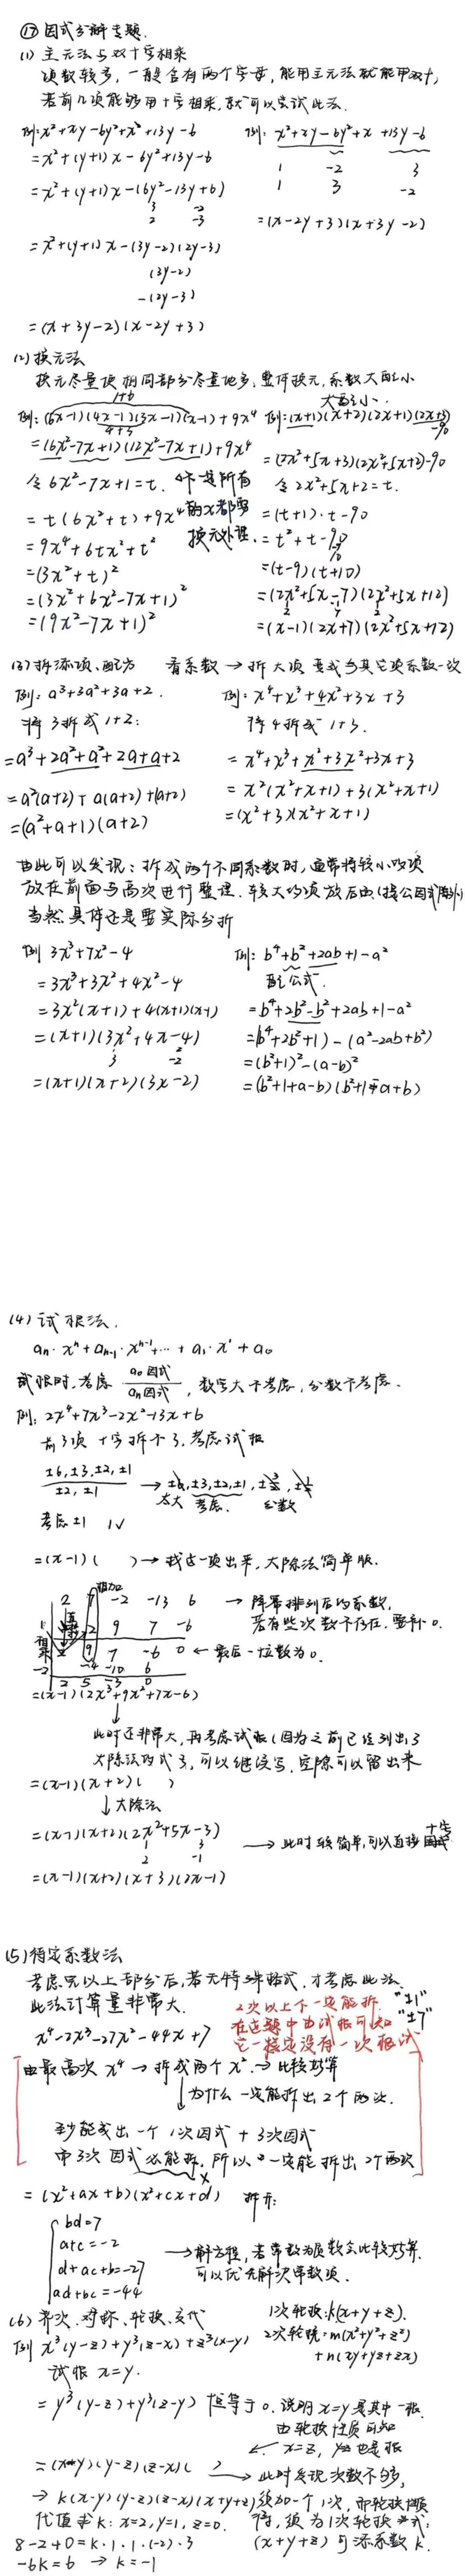 ⑰ 因式分解专题.
(1) 主元法与双十字相乘
项数较多, 一般含有两个字母, 能用主元法就能用双十,
若前几项能够用十字相乘, 就可以尝试此法.
例: x²+xy-6y²+x+13y-6
= x²+(y+1)x-6y²+13y-6
= x²+(y+1)x-(6y²-13y+6)
3 -2
2 -3
= x²+(y+1)x-(3y-2)(2y-3)
(3y-2)
-(2y-3)
= (x+3y-2)(x-2y+3)
例: x²+xy-6y²+x+13y-6
1 -2 3
1 3 -2
= (x-2y+3)(x+3y-2)
(2) 换元法
换元尽量使相同部分尽量地多, 整体换元, 系数大配小
1+6
例: (6x-1)(4x-1)(3x-1)(x-1)+9x⁴
4+3
= (6x²-7x+1)(12x²-7x+1)+9x⁴
令 6x²-7x+1=t.
不是所有的x都要换元处理.
= t(6x²+t)+9x⁴
= 9x⁴+6tx²+t²
= (3x²+t)²
= (3x²+6x²-7x+1)²
= (9x²-7x+1)²
大配小.
例: (x+1)(x+2)(2x+1)(2x+3)-90
= (2x²+5x+3)(2x²+5x+2)-90
令 2x²+5x+2=t.
= (t+1)·t-90
= t²+t-90
= (t-9)(t+10)
= (2x²+5x-7)(2x²+5x+12)
= (x-1)(2x+7)(2x²+5x+12)
(3) 拆添项、配方 看系数 → 拆大项 要或与其它项系数一致
例: a³+3a²+3a+2.
将3拆成1+2:
= a³+2a²+a²+2a+a+2
= a²(a+2)+a(a+2)+(a+2)
= (a²+a+1)(a+2)
例: x⁴+x³+4x²+3x+3
将4拆成1+3.
= x⁴+x³+x²+3x²+3x+3
= x²(x²+x+1)+3(x²+x+1)
= (x²+3)(x²+x+1)
由此可以发现: 拆成两个不同系数时, 通常将较小的项
放在前面与高次进行整理. 较大的项放后面(提公因式
当然具体还是要实际分析
例 3x³+7x²-4
= 3x³+3x²+4x²-4
= 3x²(x+1)+4(x+1)(x-1)
= (x+1)(3x²+4x-4)
3 -2
= (x+1)(x+2)(3x-2)
例: b⁴+b²+2ab+1-a²
配公式.
= b⁴+2b²-b²+2ab+1-a²
= (b⁴+2b²+1)-(a²-2ab+b²)
= (b²+1)²-(a-b)²
= (b²+1+a-b)(b²+1-a+b)
(4) 试根法.
aₙ·xⁿ+aₙ₋₁·xⁿ⁻¹+…+a₁·x¹+a₀
试根时, 考虑 a₀因式/aₙ因式, 数字大不考虑, 分数不考虑.
例: 2x⁴+7x³-2x²-13x+6
前3项十字拆不了, 考虑试根
±6,±3,±2,±1
±2, ±1
→ ±6,±3,±2,±1,±3/2,±1/2
太大 考虑. 分数
考虑±1 1√
= (x-1)( ) → 找这一项出来, 大除法简单版.
相加
2 7 -2 -13 6 → 降幂排列后的系数,
若有些次数不存在, 要补0.
1 2 9 7 -6
2 9 7 -6 0 ← 最后一位数为0.
-2 -4 -10 6
2 5 -3 0
= (x-1)(2x³+9x²+7x-6)
此时还非常大, 再考虑试根(因为之前已经列出了
大除法的式子, 可以继续写, 空隙可以留出来
= (x-1)(x+2)( )
↓大除法
= (x-1)(x+2)(2x²+5x-3)
1 3
2 -1
→ 此时较简单, 可以直接十字
= (x-1)(x+2)(x+3)(2x-1)
(5) 待定系数法
考虑完以上部分后, 若无特殊格式, 才考虑此法.
此法计算量非常大.
x⁴-2x³-27x²-44x+7
2次以上不一定能拆. "±1"
在这题中由试根可知 "±7"
它一定没有一次根式
由最高次x⁴ → 拆成两个x² → 比较好算
↓为什么一定能拆出2个两次.
至少能或出一个1次因式+3次因式
中3次因式必能拆, 所以一定能拆出2个两次
= (x²+ax+b)(x²+cx+d) 拆开:
bd=7
a+c=-2
d+ac+b=-27
ad+bc=-44
→ 解方程, 若常数为质数会比较好算.
可以优先解决常数项.
(6) 齐次、对称、轮换、交代
1次轮换: k(x+y+z).
2次轮换: m(x²+y²+z²)
+n(xy+yz+zx)
例 x³(y-z)+y³(z-x)+z³(x-y)
试根 x=y.
= y³(y-z)+y³(z-y) 恒等于0. 说明x=y是其中一根.
由轮换性质可知
x=z, y=z也是根
= (x-y)(y-z)(z-x)( ) → 此时发现次数不够,
→ k(x-y)(y-z)(z-x)(x+y+z) 须加一个1次, 而轮换
须为1次轮换式:
(x+y+z) 可添系数k.
代值求k: x=2, y=1, z=0.
8-2+0=k·1·1·(-2)·3
-6k=6 → k=-1